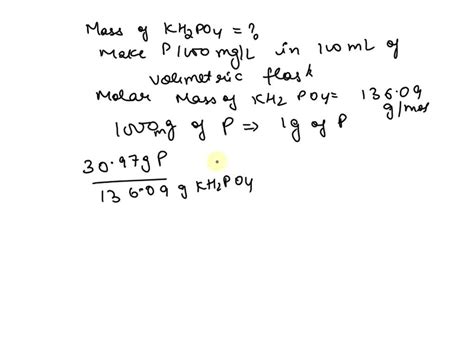 Mass of KH2PO4 = ?
Make P 1000 mg/L in 100 mL of
volimetric flask
Molar Mass of KH2PO4 = 136.09
g/mol
1000mg of P ⇒ 1g of P
30.97g P
136.09 g KH2PO4